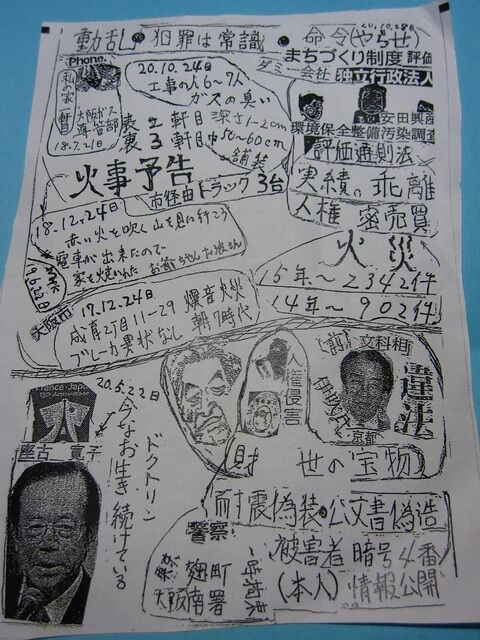 20.10.28日
動乱・犯罪は常識・命令(やらせ)
まちづくり制度 評価
ダミー会社 独立行政法人
Phone.
私の家
軒目
大阪ガス
導管部
18.7.21日
20.10.24日
工事の人6~7人
ガスの臭い
表2軒目 深さ1~2cm
裏3軒目 中50~60cm
舗装
安田興産
環境保全整備汚染調査
評価通則法
実績の乖離
人権 密売買
火事予告
市経由トラック3台
18.12.24日
赤い火を吹く山を見に行こう
電車が出来たので
家を焼いた
19.6.22日
火災
15年~2342件
14年~902件
大阪市
17.12.24日
成育2丁目11-29 爆音火災
ブレーカ異状なし 朝7時代
France-Japon
150
火
20.5.22日
今なお生き続けている
ドクトリン
人権侵害
(前)文科相
伊吹氏
京都
違法
財 世の宝物
耐震偽装・公文書偽造
警察
東京 麹町
大阪南署
被害者 暗号4番
(本人) 情報公開